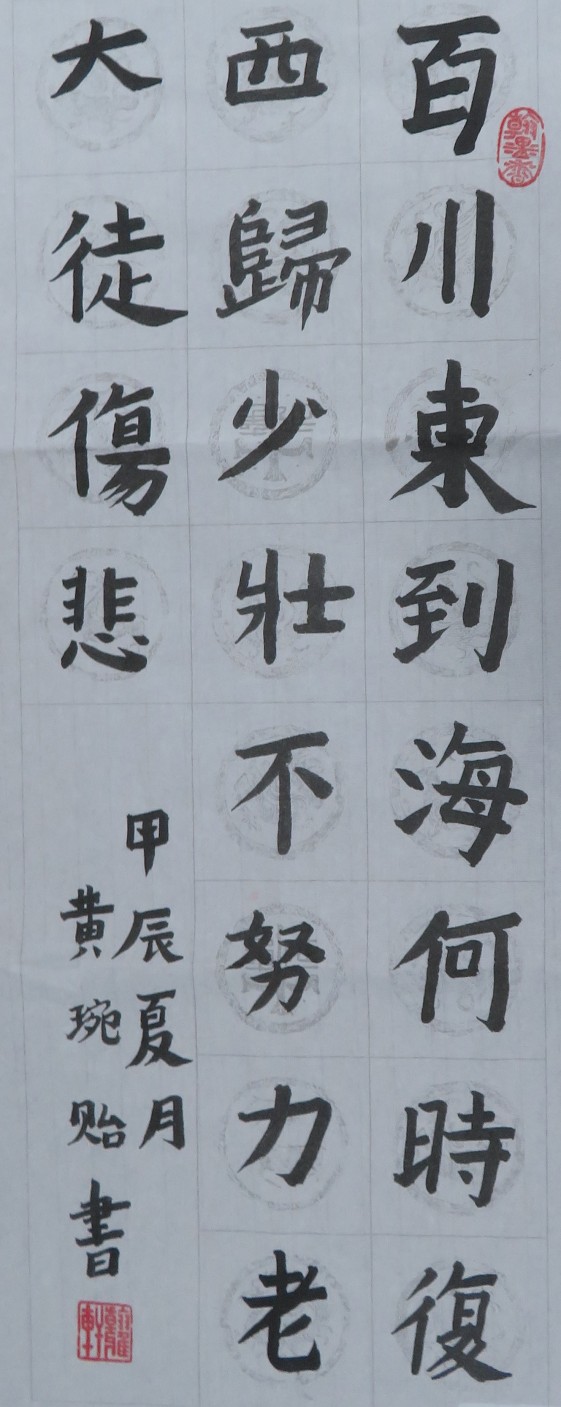 百川東到海何時復
西歸少壯不努力老
大徒傷悲
甲辰夏月
黄琬贻書
翰墨香